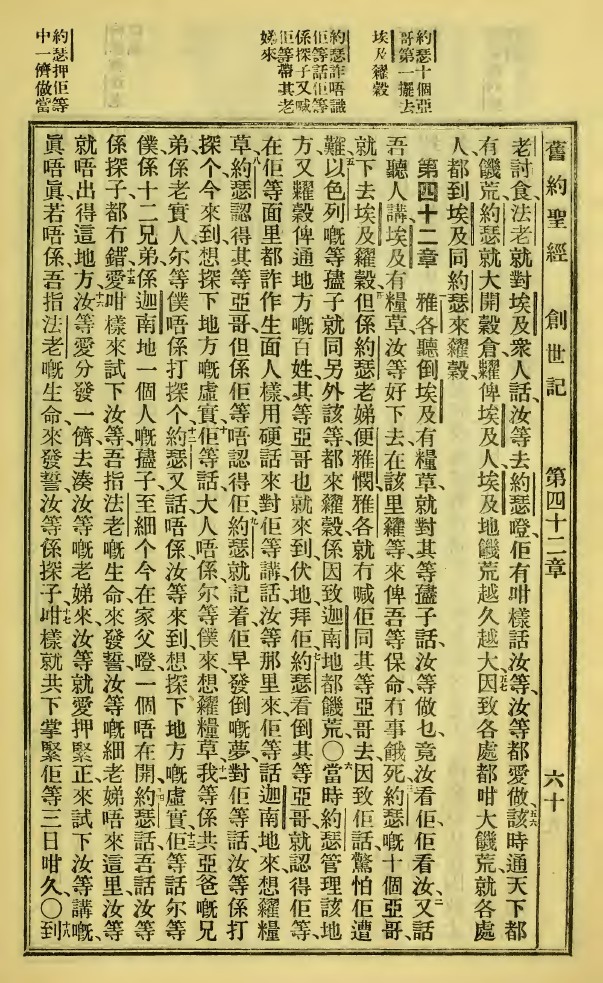 舊約聖經 創世記 第四十二章 六十
約瑟十個亞
哥第一擺去
埃及糴穀
約瑟詐唔識
佢等話佢等
係探子又喊
佢等帶其老
娣來
約瑟押佢等
中一儕做當
老討食、法老就對埃及衆人話、汝等去約瑟嶝、佢有咁樣話汝等、汝等都愛做、五六該時通天下都
有饑荒、約瑟就大開穀倉、糶俾埃及人、埃及地饑荒越久越大、五七因致各處都咁大饑荒、就各處
人都到埃及同約瑟來糴穀、
第四十二章 一雅各聽倒埃及有糧草、就對其等孻子話、汝等做乜竟汝看佢佢看汝、二又話
吾聽人講、埃及有糧草、汝等好下去在該里糴等來俾吾等保命、冇事餓死、三約瑟嘅十個亞哥、
就下去埃及糴穀、四但係約瑟老娣便雅憫、雅各就冇喊佢同其等亞哥去、因致佢話、驚怕佢遭
難、五以色列嘅等孻子、就同另外該等都來糴穀、係因致迦南地都饑荒、〇六當時約瑟管理該地
方、又糶穀俾通地方嘅百姓、其等亞哥也就來到、伏地拜佢、七約瑟看倒其等亞哥、就認得佢等、
在佢等面里都詐作生面人樣、用硬話來對佢等講話、汝等那里來、佢等話、迦南地來想糴糧
草、八約瑟認得其等亞哥、但係佢等唔認得佢、九約瑟就記着佢早發倒嘅夢、對佢等話、汝等係打
探个、今來到想探下地方嘅虛實、十佢等話、大人唔係、尔等僕來想糴糧草、十一我等係共亞爸嘅兄
弟、係老實人、尔等僕唔係打探个、十二約瑟又話、唔係、汝等來到想探下地方嘅虛實、十三佢等話、尔等
僕係十二兄弟、係迦南地一個人嘅孻子、至細个今在家父嶝、一個唔在開、十四約瑟話、吾話汝等
係探子都冇錯、十五愛咁樣來試下汝等、吾指法老嘅生命來發誓、汝等嘅細老娣唔來這里、汝等
就唔出得這地方、十六汝等愛分發一儕去湊汝等嘅老娣來、汝等就愛押緊、正來試下汝等講嘅、
眞唔眞、若唔係、吾指法老嘅生命來發誓、汝等係探子、十七咁樣就共下掌緊佢等三日咁久、〇十八到